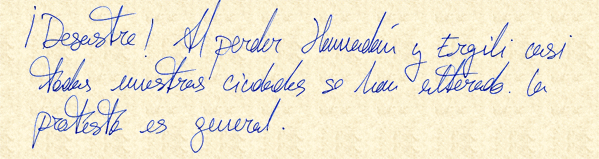 ¡Desastre! Al perder Hamadán y Ergili casi
todas nuestras ciudades se han alterado. La
protesta es general.